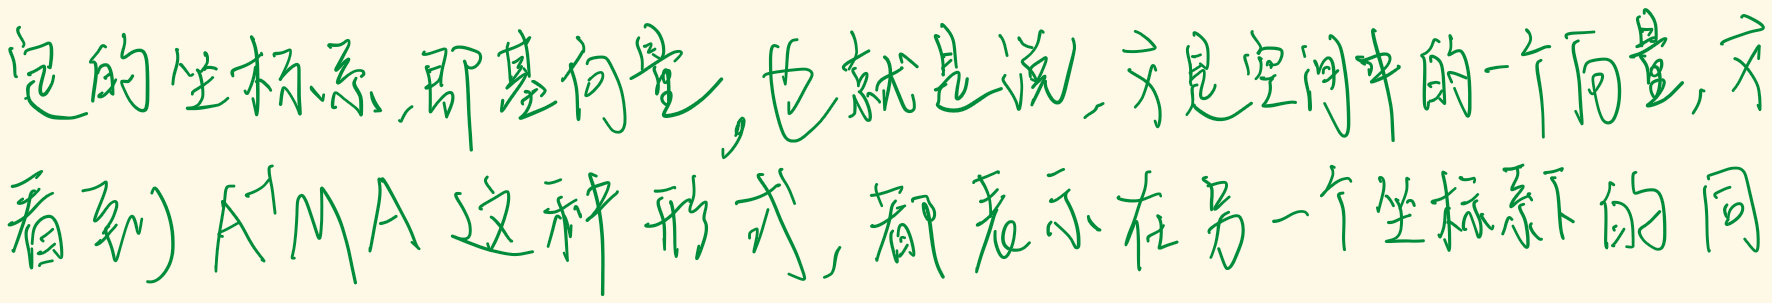 定的坐标系,即基向量,也就是说,x⃗是空间中的一个向量,x⃗
看到A⁻¹MA这种形式,都表示在另一个坐标系下的同